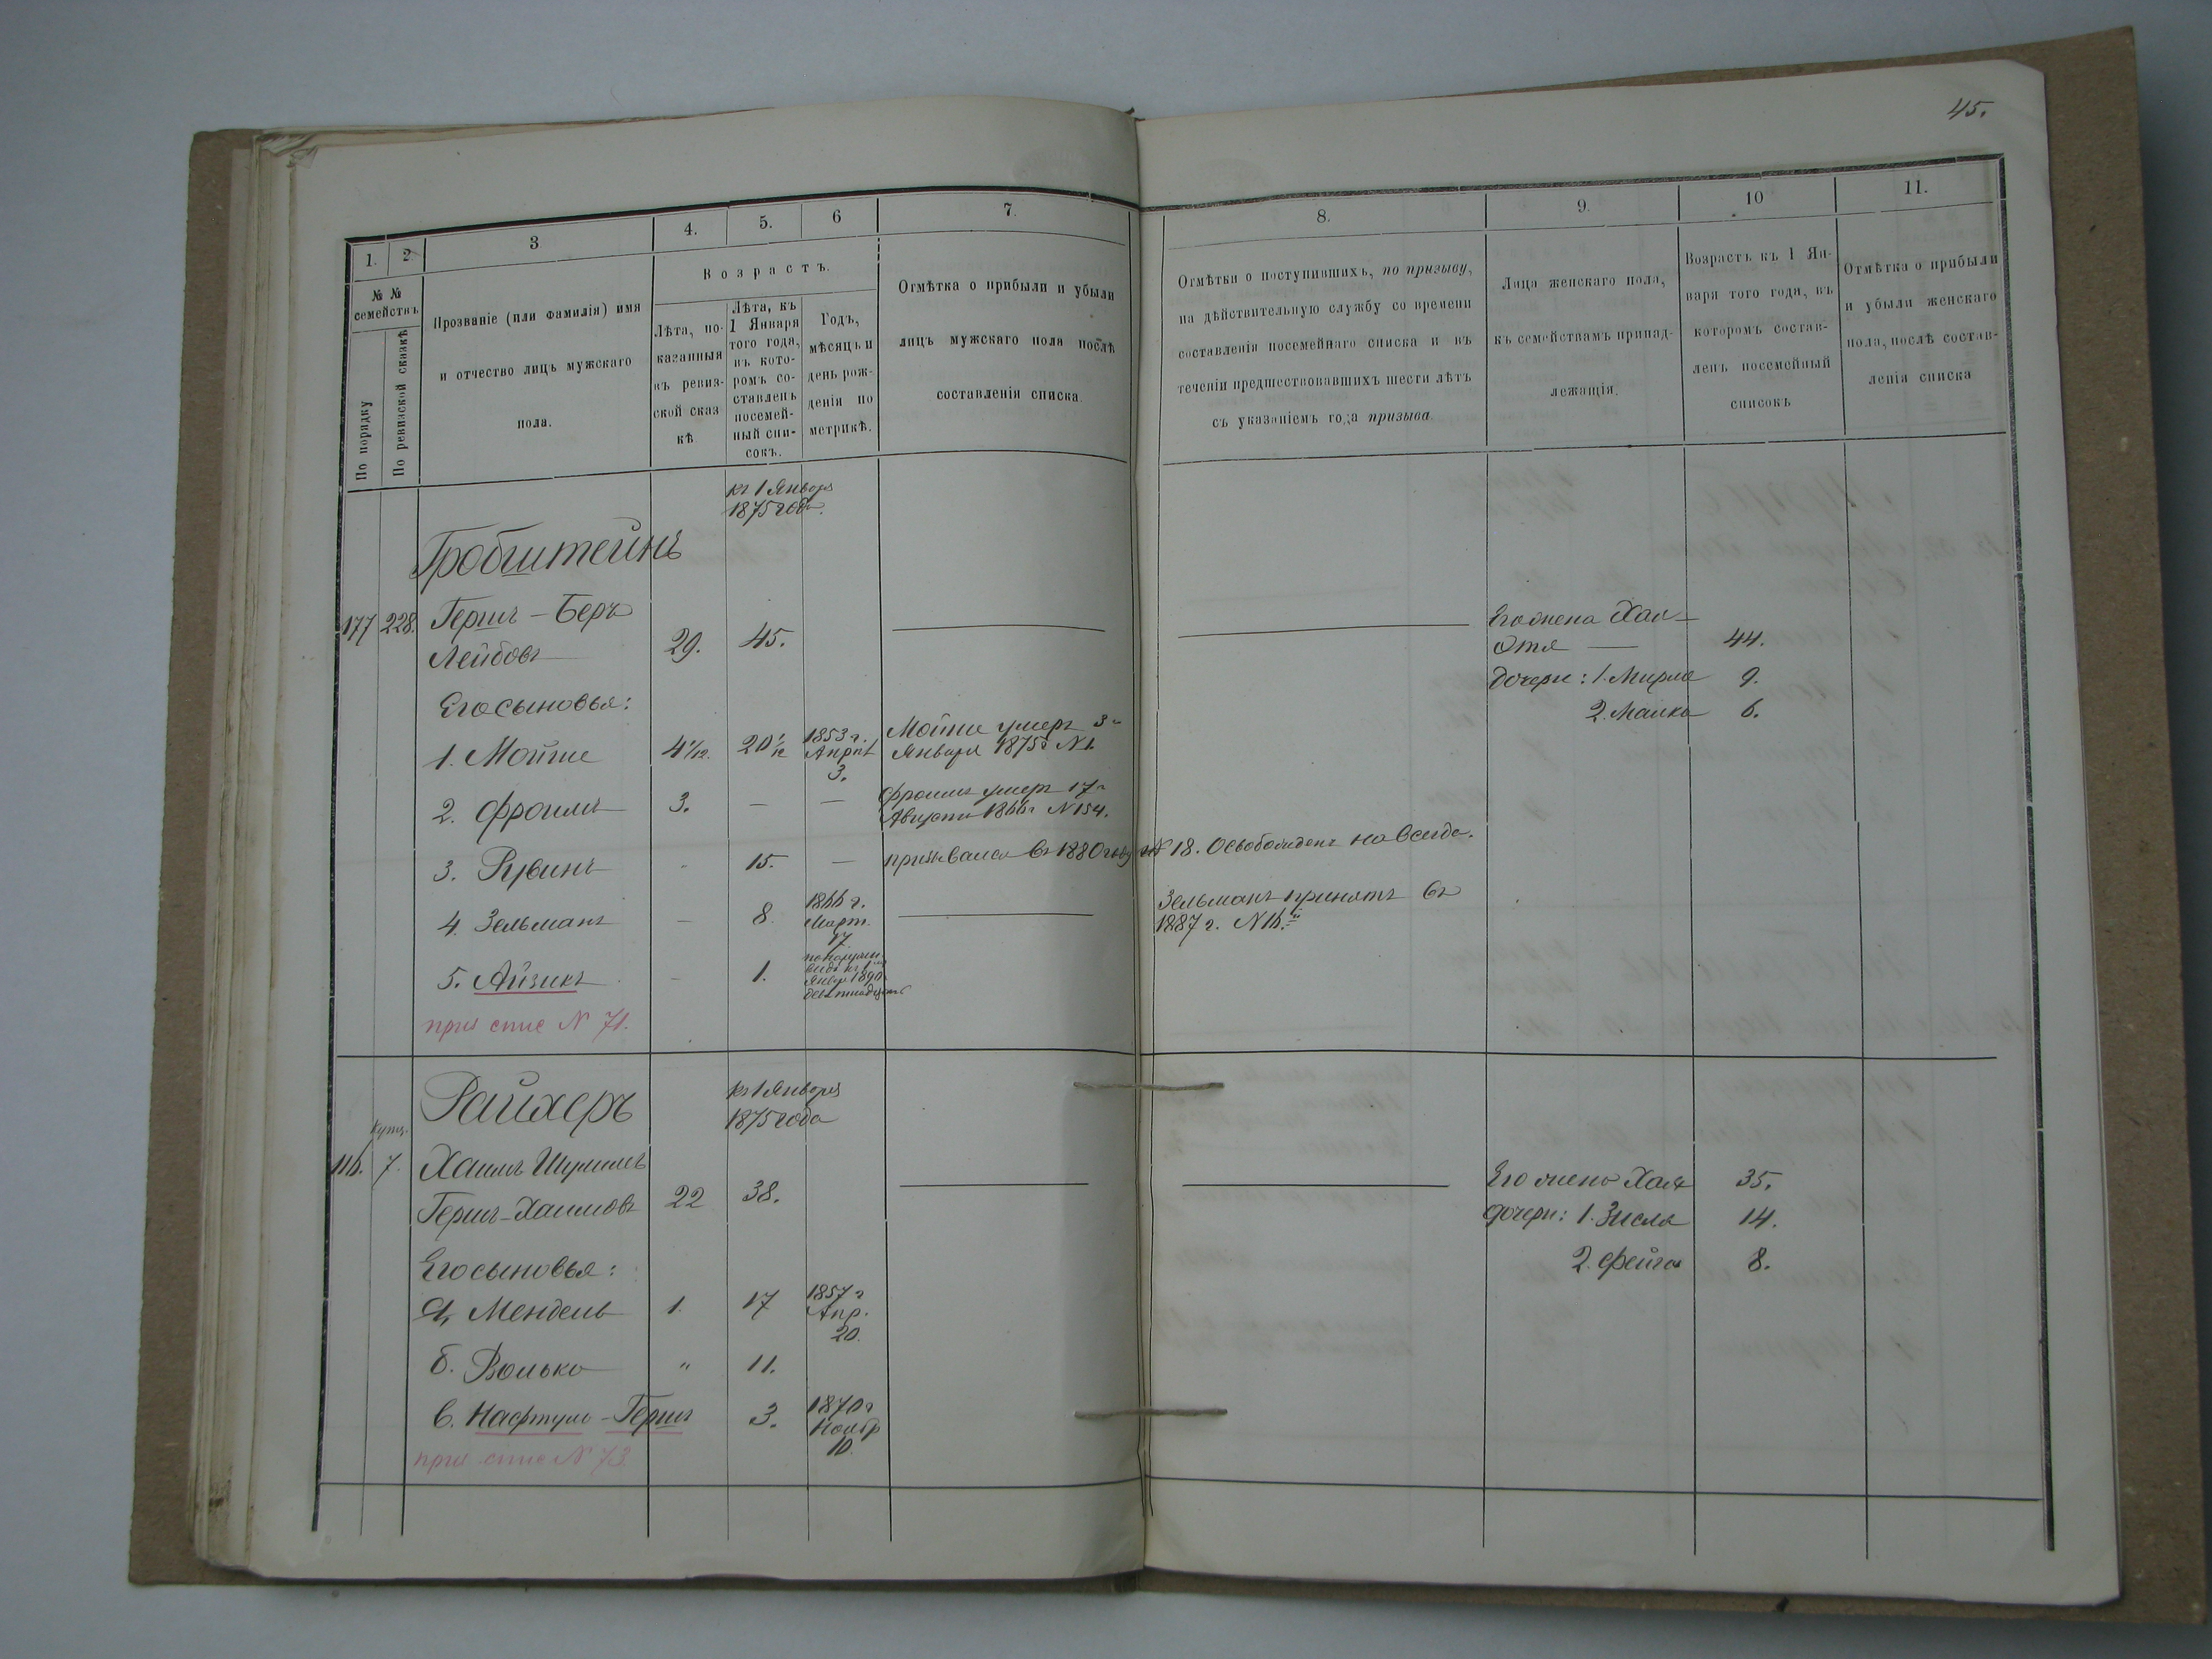 45.
1.
2
3
4.
5.
6
7.
8.
9.
10
11.
№ №
семействъ
По порядку
По ревизской сказкѣ
Прозваніе (или Фамилія) имя
и отчество лицъ мужскаго
пола.
Возрастъ.
Лѣта, по-
казанныя
въ ревиз-
ской сказ
кѣ
Лѣта, къ
1 Января
того года,
въ кото-
ромъ со-
ставленъ
посемей-
ный спи-
сокъ.
Годъ,
мѣсяцъ и
день рож-
денія по
метрикѣ.
Отмѣтка о прибыли и убыли
лицъ мужскаго пола послѣ
составленія списка
Отмѣтки о поступившихъ, по призыву,
на дѣйствительную службу со времени
составленія посемейнаго списка и въ
теченіи предшествовавшихъ шести лѣтъ
съ указаніемъ года призыва.
Лица женскаго пола,
къ семействамъ принад-
лежащія.
Возрастъ къ 1 Ян-
варя того года, въ
которомъ состав-
ленъ посемейный
списокъ
Отмѣтка о прибыли
и убыли женскаго
пола, послѣ состав-
ленія списка
къ 1 Января
1875 года.
Гробштейнъ
177 228. Гершъ-Беръ
Лейбовъ 29. 45.
Его жена Хая-
Этя 44.
дочери: 1. Мирля 9.
2. Малка 6.
Его сыновья:
1. Мошие 4 1/12. 20 1/12 1853 г. Апрѣл 3. Мошие умеръ 3
Января 1875 г № 1.
2. Фроимъ 3. — — Фроимъ умеръ 17
Августа 1866 г № 154.
3. Рувинъ - 15. — призывался въ 1880 году № 18. Освобожденъ навсегда.
4. Зельманъ — 8. 1866 г. Март. 17. Зельманъ принятъ въ
1887 г. № 16.
5. Айзикъ - 1. по наружн. виду къ 1 Янвр. 1890 девятнадцать
приз спис № 71.
Райхеръ
къ 1 Января
1875 года
купц.
116. 7. Хаимъ Шулимъ
Гершъ-Хаимовъ 22 38.
Его жена Хая 35.
дочери: 1. Зисля 14.
2. Фейга 8.
Его сыновья:
а, Мендель 1. 17 1857 г Апр. 20.
б. Волько " 11.
в. Нафтула-Гершъ 3. 1870 г Ноябр 10.
приз спис № 73.